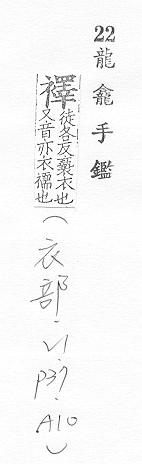 22龍龕手鑑
襗徒各反褻衣也
又音亦衣襦也
(衣部.V1.p37.A10)